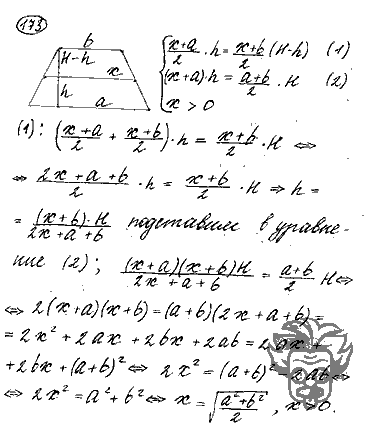 173
b
H-h
x
h
a
{ (x+a)/2 · h = (x+b)/2 (H-h) (1)
(x+a)·h = (a+b)/2 · H (2)
x > 0
(1): ((x+a)/2 + (x+b)/2)·h = (x+b)/2 · H ⇔
⇔ (2x+a+b)/2 · h = (x+b)/2 · H ⇒ h =
= (x+b)·H/(2x+a+b) подставим в уравне-
ние (2); (x+a)(x+b)H/(2x+a+b) = (a+b)/2 H ⇔
⇔ 2(x+a)(x+b) = (a+b)(2x+a+b) =
= 2x² + 2ax + 2bx + 2ab = 2ax +
+2bx + (a+b)² ⇔ 2x² = (a+b)² - 2ab ⇔
⇔ 2x² = a² + b² ⇔ x = √((a²+b²)/2), x > 0.